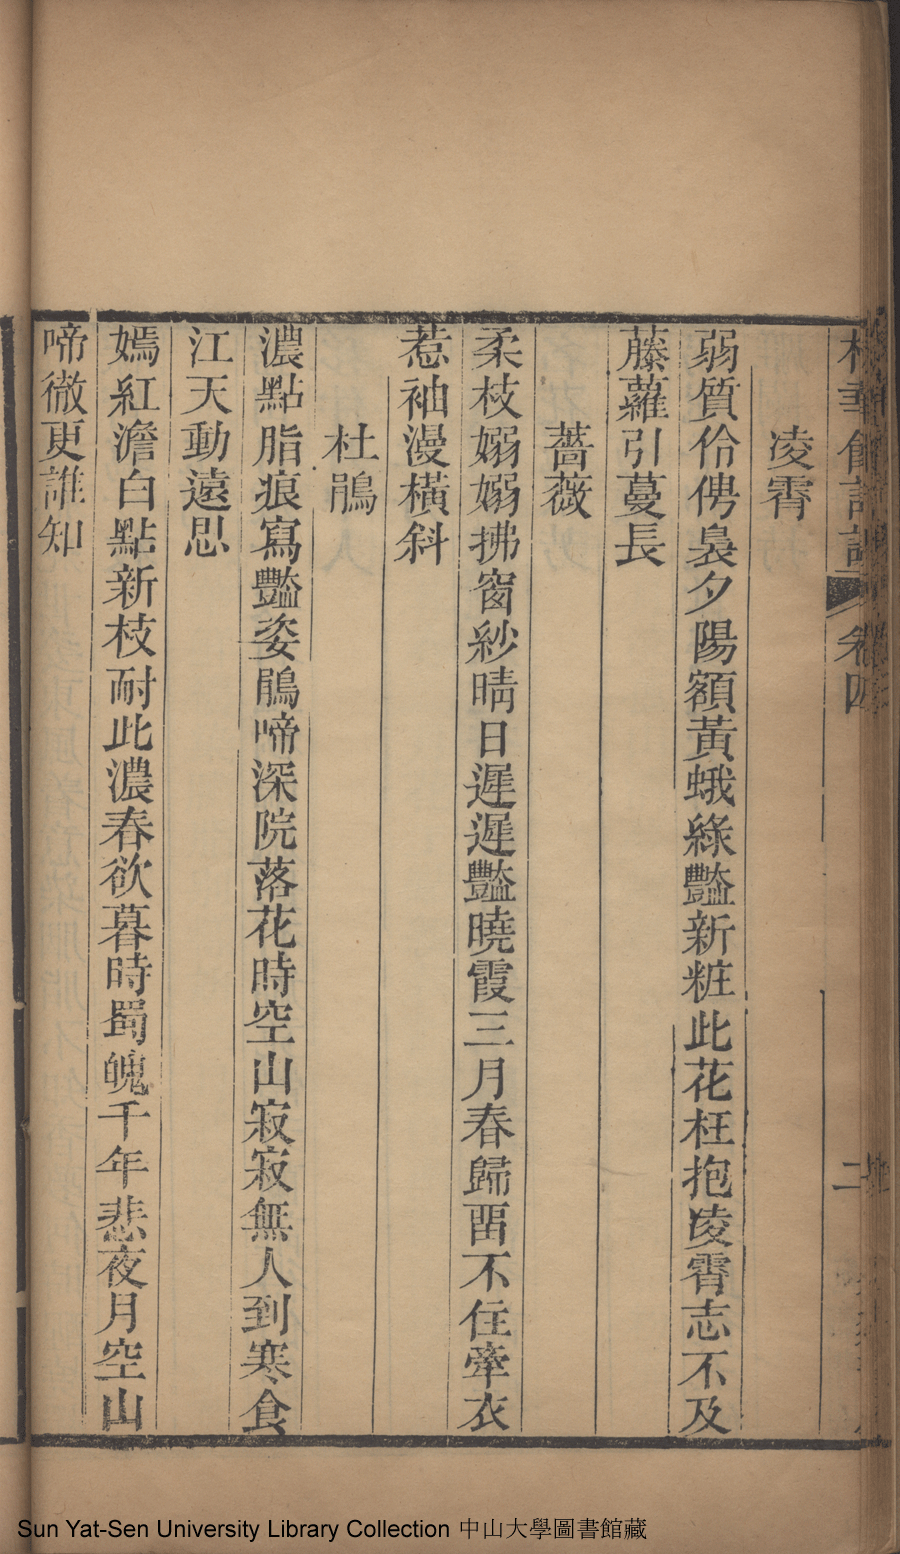 凌霄
弱質伶俜裊夕陽額黃蛾綠豔新粧此花枉抱凌霄志不及
藤蘿引蔓長
薔薇
柔枝嫋嫋拂窗紗晴日遲遲豔曉霞三月春歸畱不住牽衣
惹袖漫橫斜
杜鵑
濃點脂痕寫豔姿鵑啼深院落花時空山寂寂無人到寒食
江天動遠思
嫣紅澹白點新枝耐此濃春欲暮時蜀魄千年悲夜月空山
啼徹更誰知
卷四
二
Sun Yat-Sen University Library Collection 中山大學圖書館藏